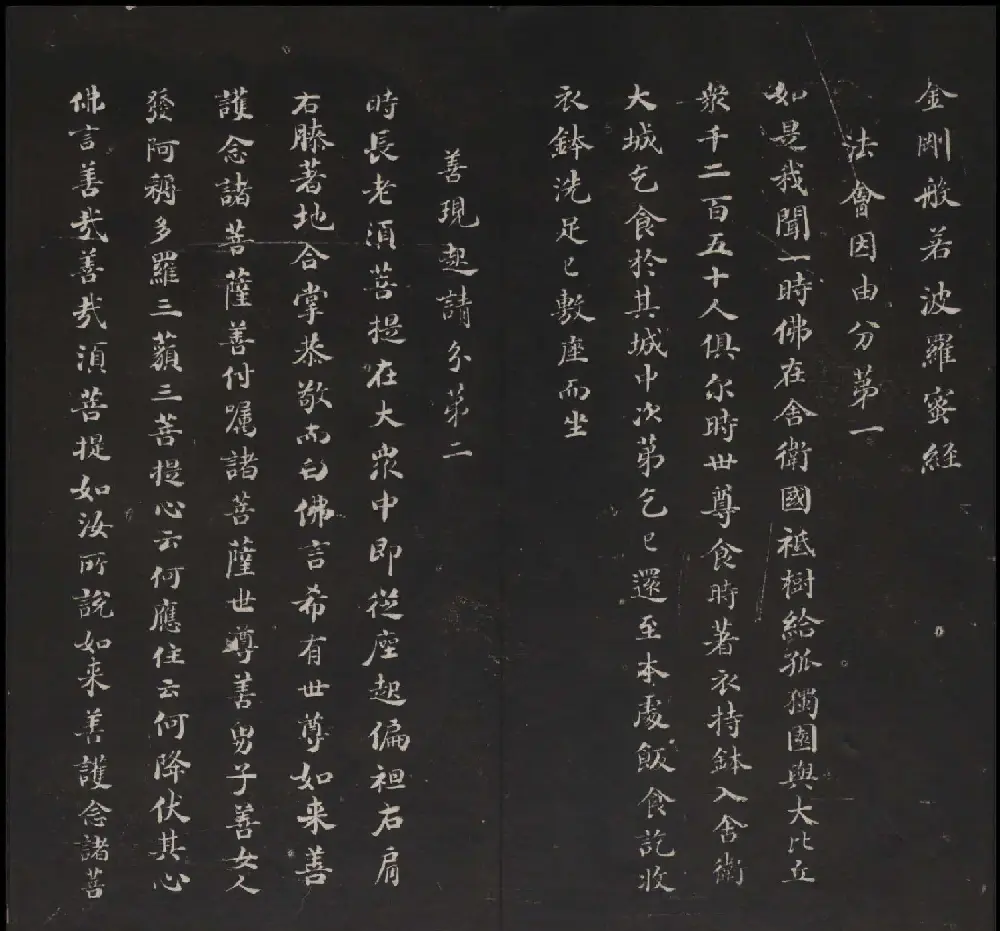 金剛般若波羅蜜經
法會因由分第一
如是我聞一時佛在舍衛國祇樹給孤獨園與大比丘
衆千二百五十人俱尒時世尊食時著衣持鉢入舍衛
大城乞食於其城中次第乞已還至本處飯食訖收
衣鉢洗足已敷座而坐
善現起請分第二
時長老須菩提在大衆中即從座起偏袒右肩
右膝著地合掌恭敬而白佛言希有世尊如来善
護念諸菩薩善付囑諸菩薩世尊善男子善女人
發阿耨多羅三藐三菩提心云何應住云何降伏其心
佛言善哉善哉須菩提如汝所說如来善護念諸菩